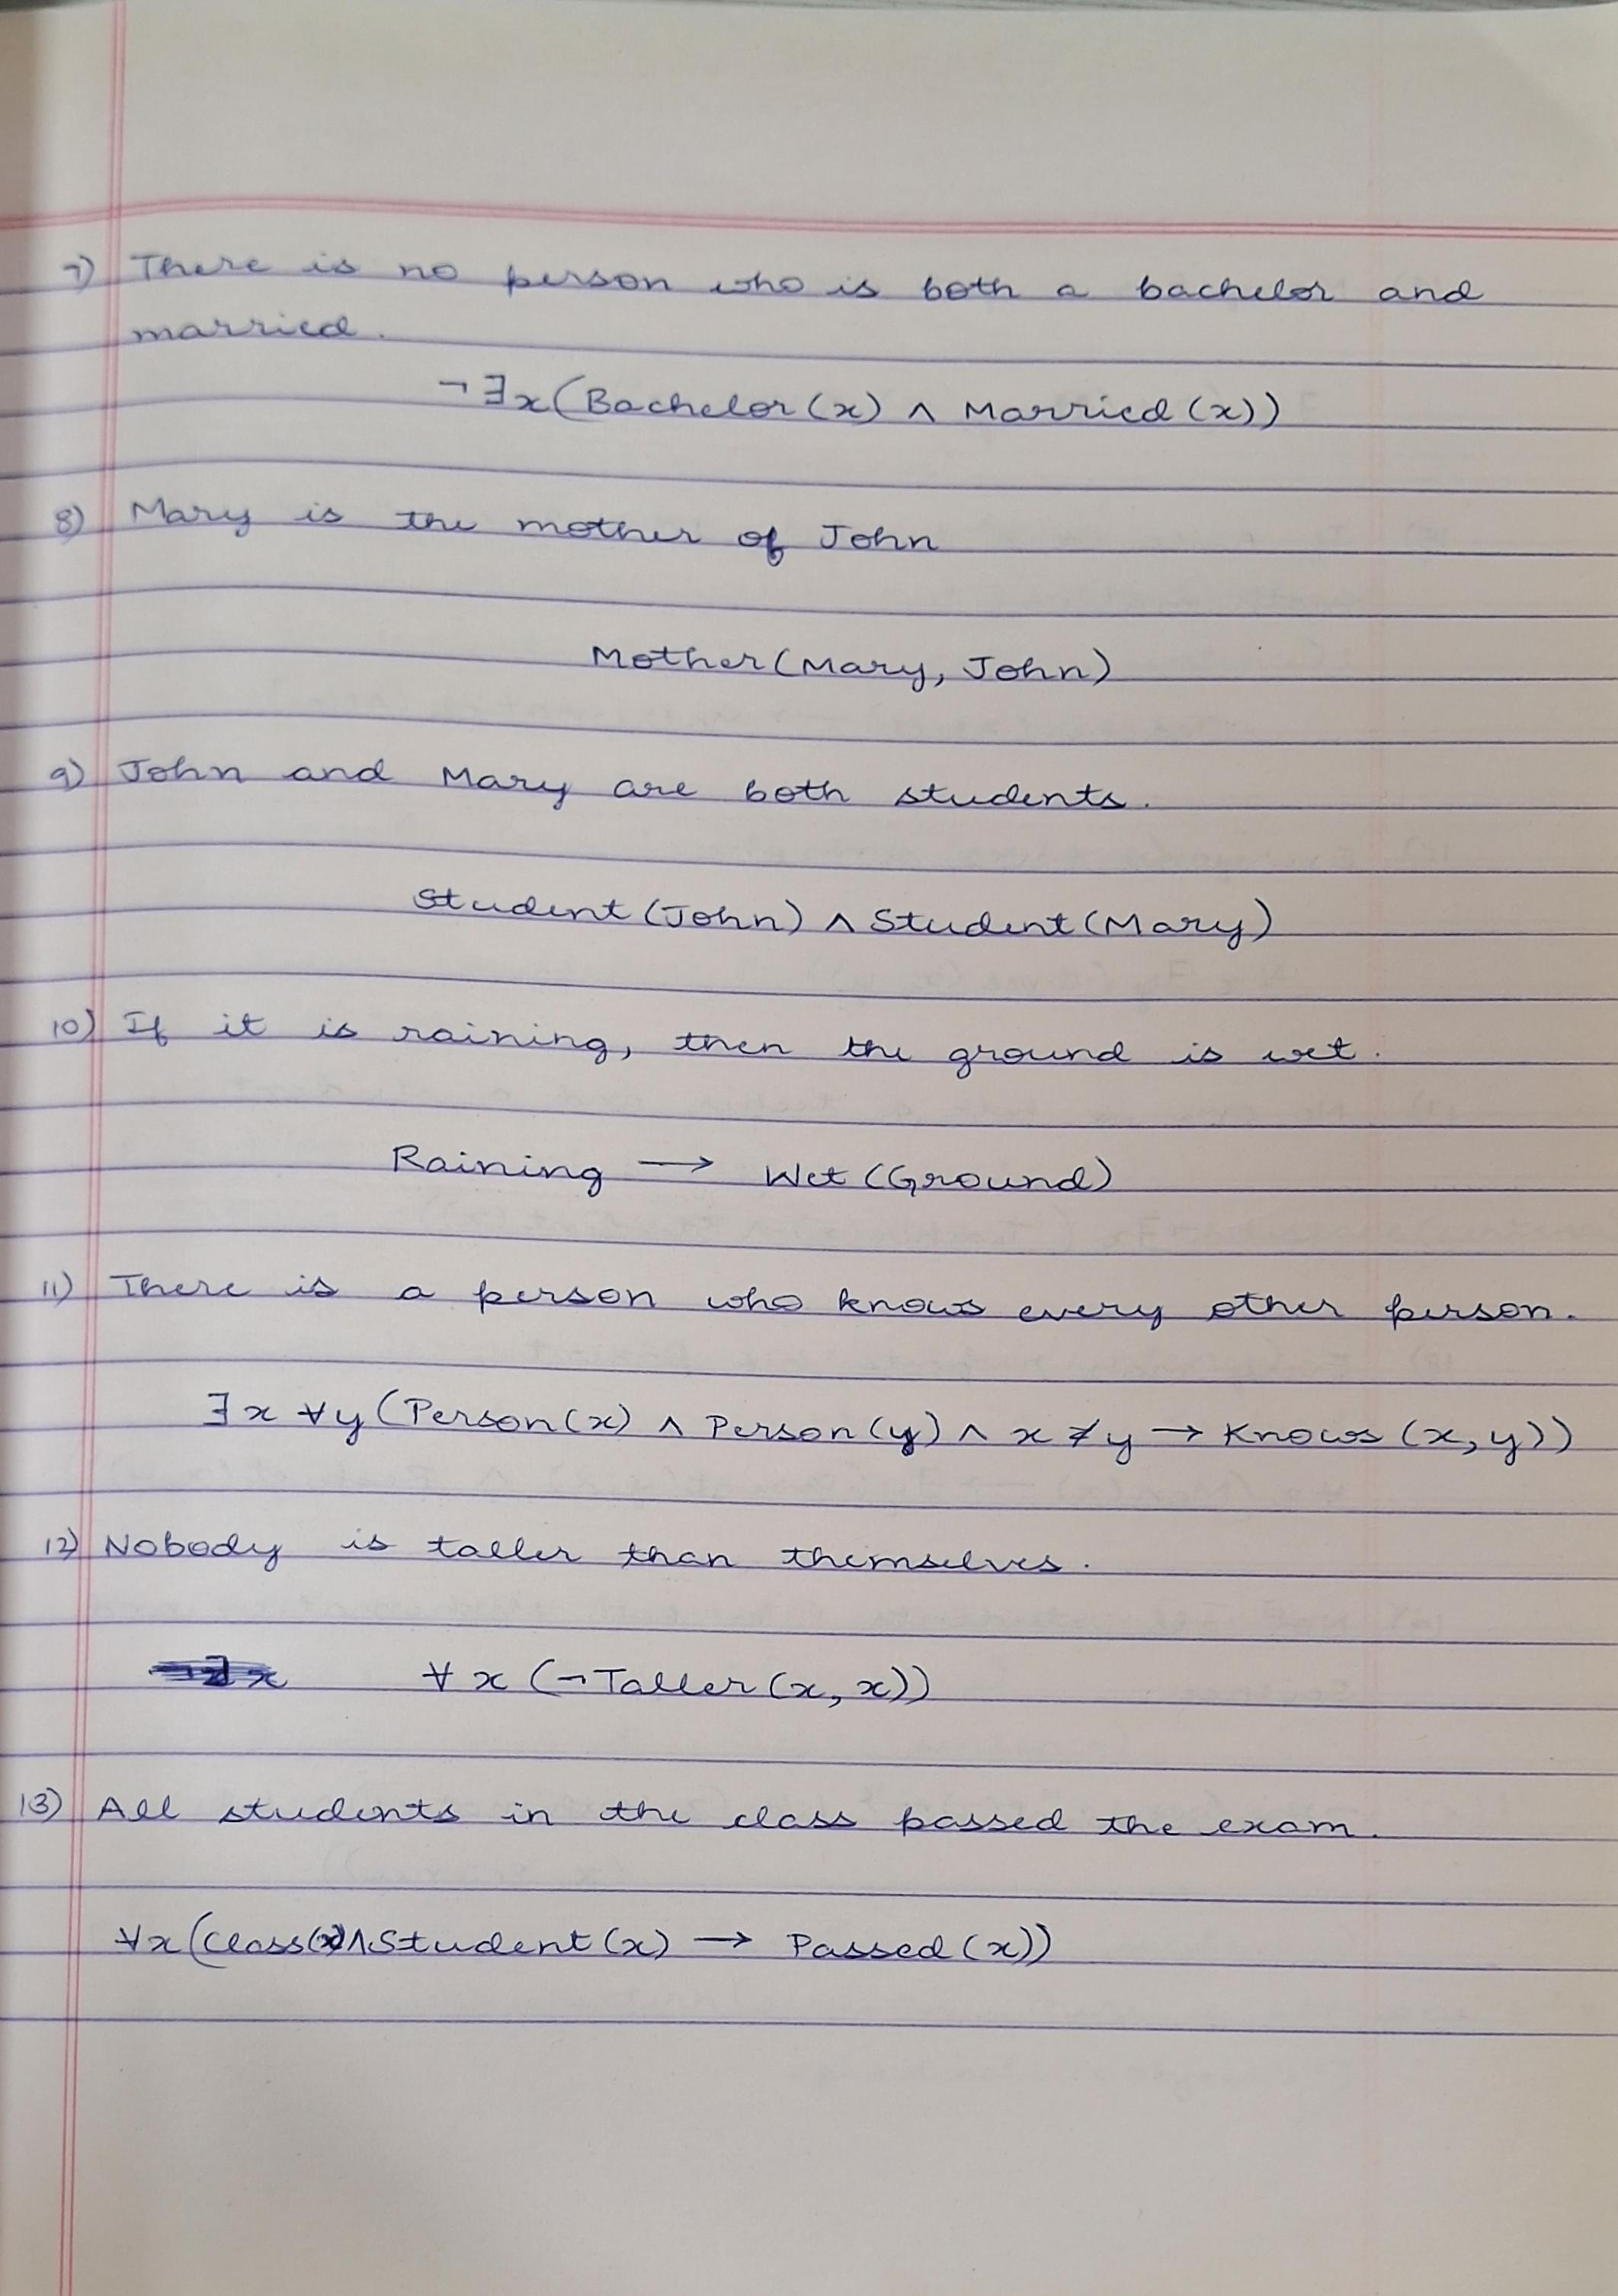 7) There is no person who is both a bachelor and
married.
¬∃x(Bachelor(x) ∧ Married(x))
8) Mary is the mother of John
Mother(Mary, John)
9) John and Mary are both students.
Student(John) ∧ Student(Mary)
10) If it is raining, then the ground is wet.
Raining → Wet(Ground)
11) There is a person who knows every other person.
∃x ∀y(Person(x) ∧ Person(y) ∧ x≠y → Knows(x,y))
12) Nobody is taller than themselves.
∀x(¬Taller(x,x))
13) All students in the class passed the exam.
∀x(Class(x)∧Student(x) → Passed(x))